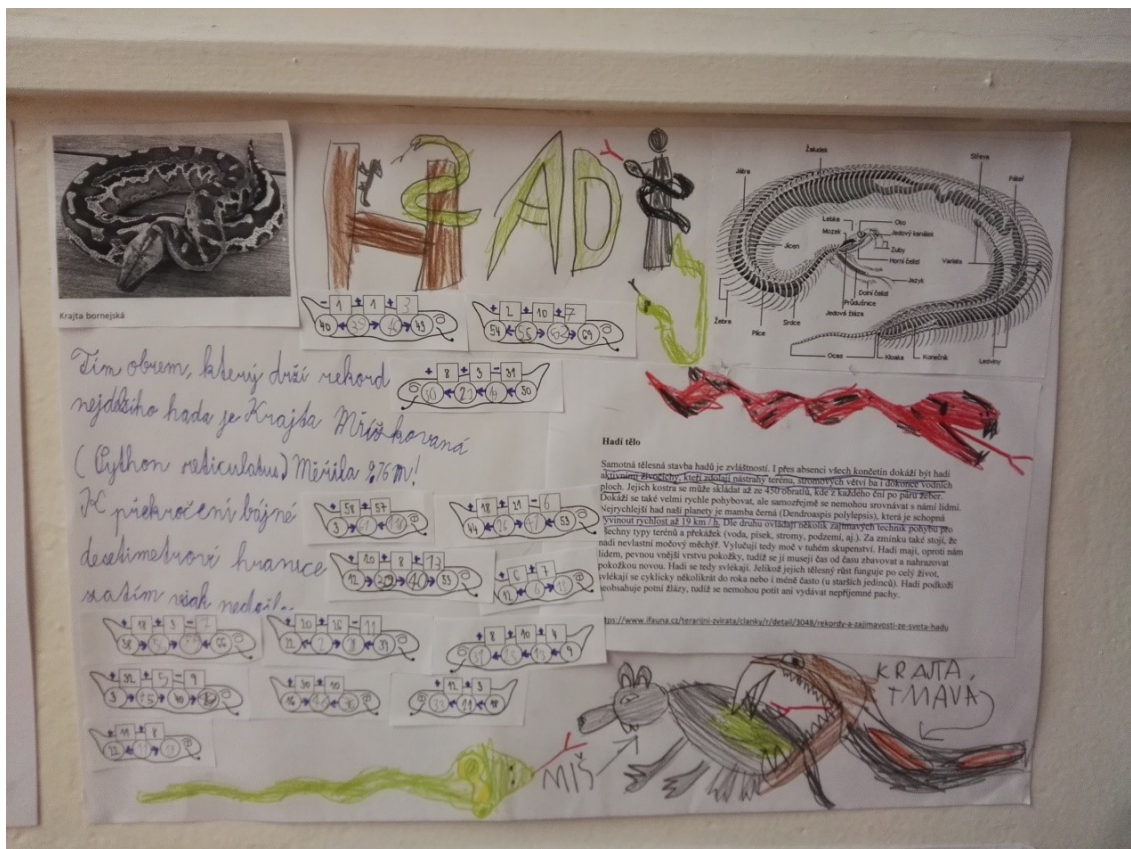 HADI
Krajta bornejská
Žaludek
Střeva
Játra
Páteř
Lebka
Oko
Mozek
Jedový kanálek
Zuby
Horní čelist
Jícen
Varlata
Jazyk
Dolní čelist
Průdušnice
Jedová žláza
Žebra
Plíce
Srdce
Ocas
Kloaka
Konečník
Ledviny
- 1 + 1 + 3
40 49
+ 2 + 10 + 7
54 55 69
+ 8 + 9 - 31
50
Tím obrem, který drží rekord
nejdelšího hada je Krajta Mřížkovaná
(Python reticulatus) Měřila 9,76m!
K překročení bájné
desetimetrové hranice
zatím však nedošl..
+ 58 + 57
3
+ 18 + 21 - 6
44 53
+ 20 + 8 + 13
12 20 40 53
+ 6 + 7
12 6
+ 18 + 3 - 2
38 56
+ 20 + 26 - 11
22 2
+ 8 + 10 + 4
9
+ 32 + 5 - 9
3
+ 30 + 10
16
+ 12 + 3
+ 11 + 8
Hadí tělo
Samotná tělesná stavba hadů je zvláštností. I přes absenci všech končetin dokáží být hadi
aktivními živočichy, kteří zdolají nástrahy terénu, stromových větví ba i dokonce vodních
ploch. Jejich kostra se může skládat až ze 450 obratlů, kde z každého ční po páru žeber.
Dokáží se také velmi rychle pohybovat, ale samozřejmě se nemohou srovnávat s námi lidmi.
Nejrychlejší had naší planety je mamba černá (Dendroaspis polylepsis), která je schopná
vyvinout rychlost až 19 km / h. Dle druhu ovládají několik zajímavých technik pohybu pro
všechny typy terénů a překážek (voda, písek, stromy, podzemí, aj.). Za zmínku také stojí, že
hadi nevlastní močový měchýř. Vylučují tedy moč v tuhém skupenství. Hadi mají, oproti nám
lidem, pevnou vnější vrstvu pokožky, tudíž se jí musejí čas od času zbavovat a nahrazovat
pokožkou novou. Hadi se tedy svlékají. Jelikož jejich tělesný růst funguje po celý život,
svlékají se cyklicky několikrát do roka nebo i méně často (u starších jedinců). Hadí podkoží
neobsahuje potní žlázy, tudíž se nemohou potit ani vydávat nepříjemné pachy.
ttps://www.ifauna.cz/terarijni-zvirata/clanky/r/detail/3048/rekordy-a-zajimavosti-ze-sveta-hadu
KRAJTA,
TMAVÁ
MIŠ